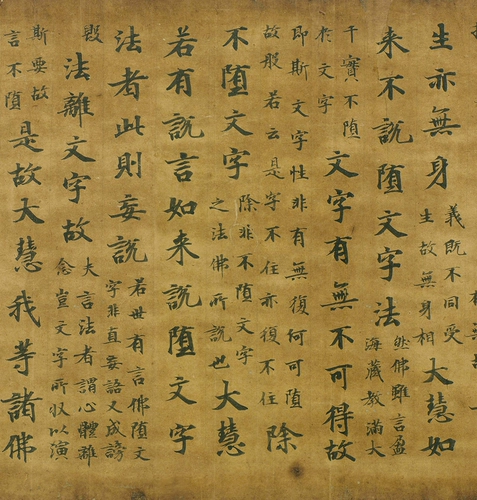 生亦無身義既不同受生故無身相大慧如
来不說墮文字法然佛雖言盈海藏教滿大
千寶不墮於文字文字有無不可得故
即斯文字性非有無復何可墮故般若云是字不住亦復不住除
不墮文字除非不墮文字之法佛所說也大慧
若有說言如来說墮文字
法者此則妄說若世有言佛墮文字非直妄語又成謗
毀法離文字故夫言法者謂心體離念豈文字所収以演
斯要故言不墮是故大慧我等諸佛